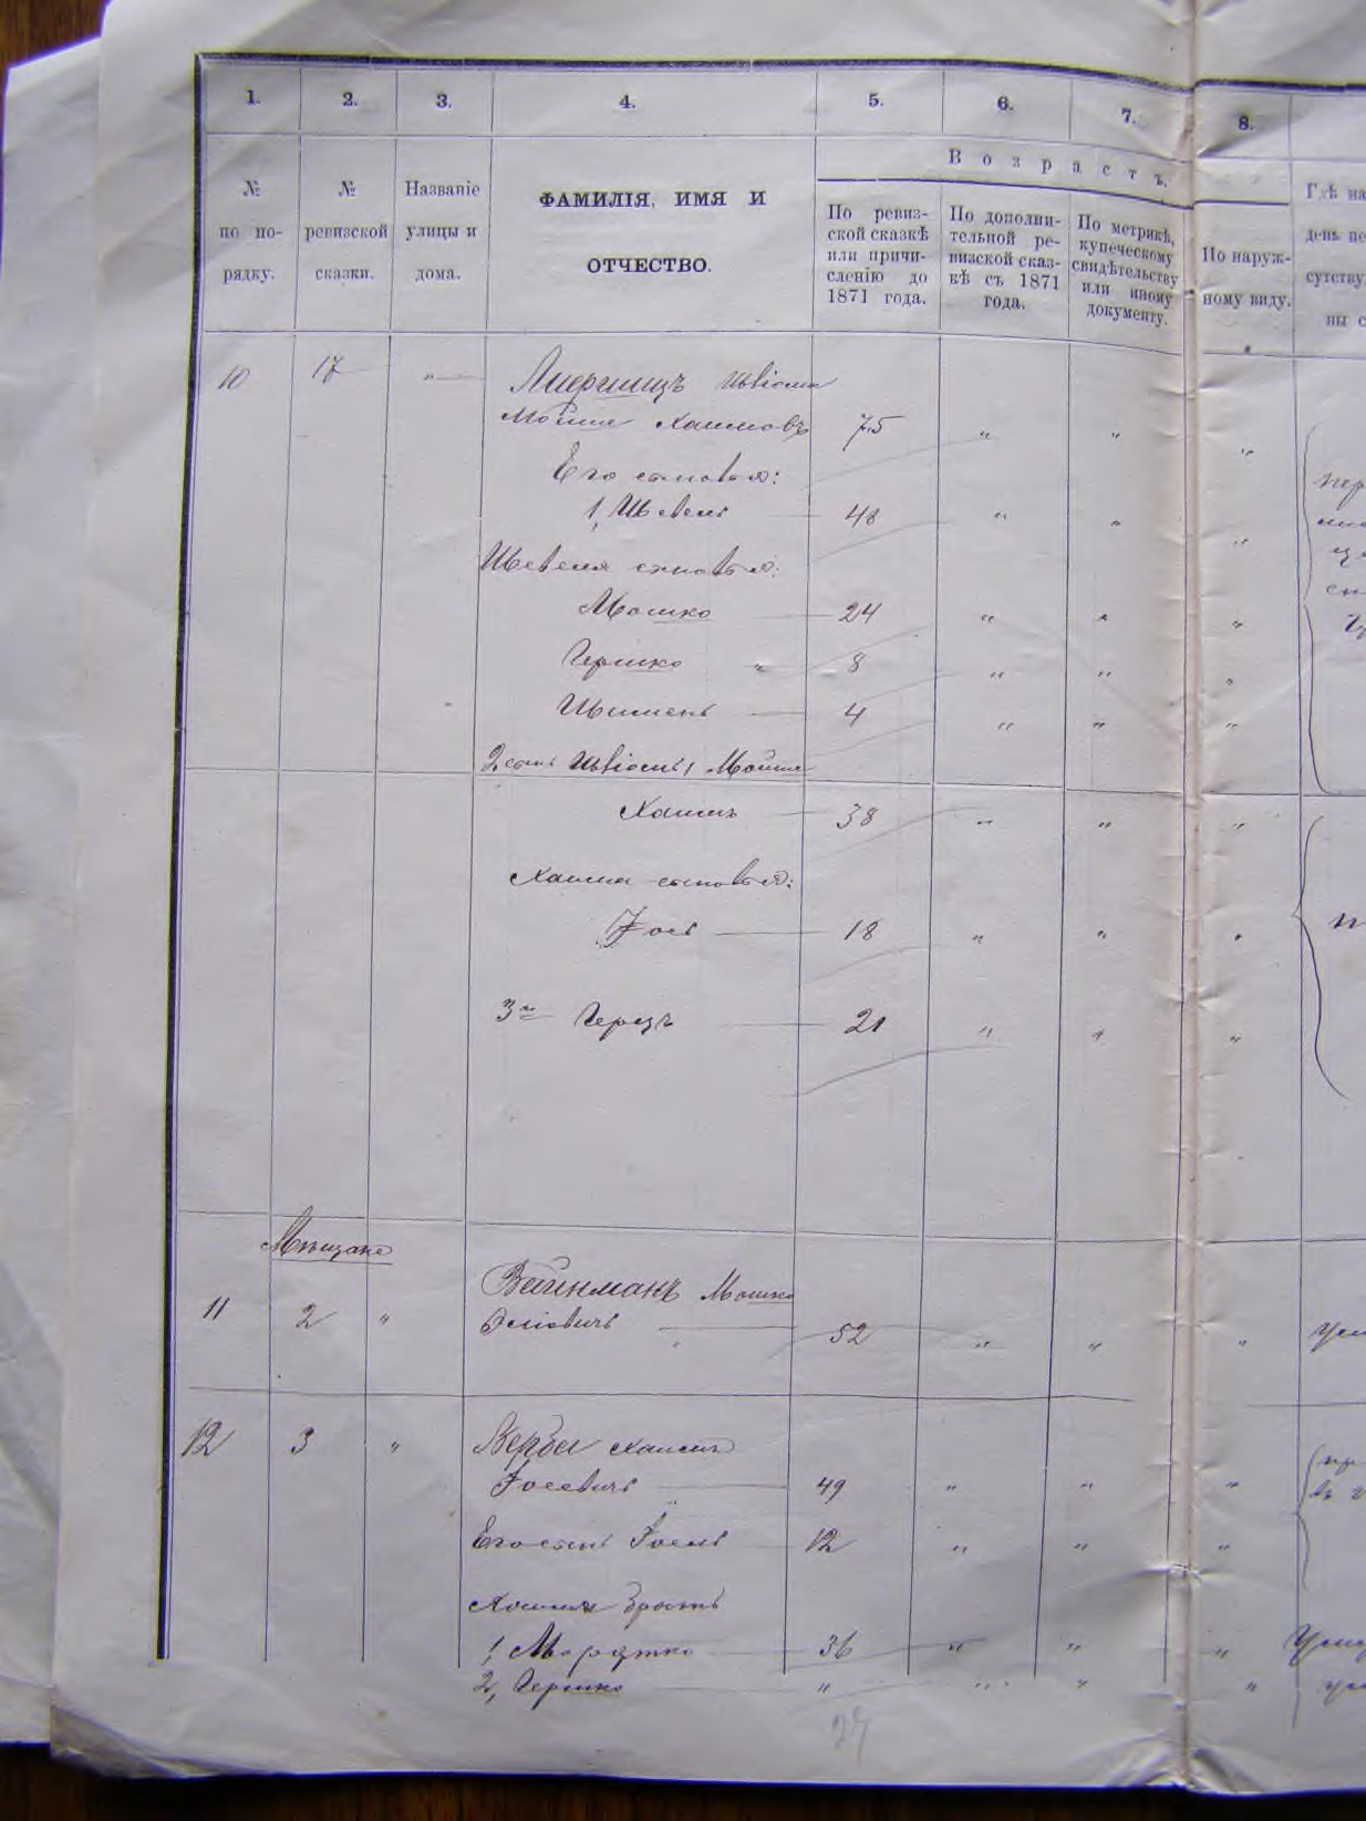 1. 2. 3. 4. 5. 6. 7. 8.
Возрастъ.
№ по порядку.
№ ревизской сказки.
Названіе улицы и дома.
ФАМИЛІЯ, ИМЯ И
ОТЧЕСТВО.
По ревиз-
ской сказкѣ
или причи-
сленію до
1871 года.
По дополни-
тельной ре-
визской сказ-
кѣ съ 1871
года.
По метрикѣ,
купеческому
свидѣтельству
или иному
документу.
По наруж-
ному виду.
Гдѣ на
день пе
сутству
ны с
10 17 "
Мойше Хаимовъ 75 " " "
Его сыновья:
1, Шевель 48 " " "
Шевеля сыновья:
Мошко 24 " " "
Гершко " 8 " " "
4 " " "
2 сынъ Мойше
Хаимъ 38 " " "
Хаима сыновья:
Іось 18 " " "
3й Герцъ 21 " " "
Мѣщане
Вайнманъ Мошко
11 2 " 52 " " "
12 3 " Верба Хаимъ
Іосевичъ 49 " " "
Его сынъ Іосель 12 " " "
Хаима братъ
1, Мордко 36 " " "
2, Гершко " " " "